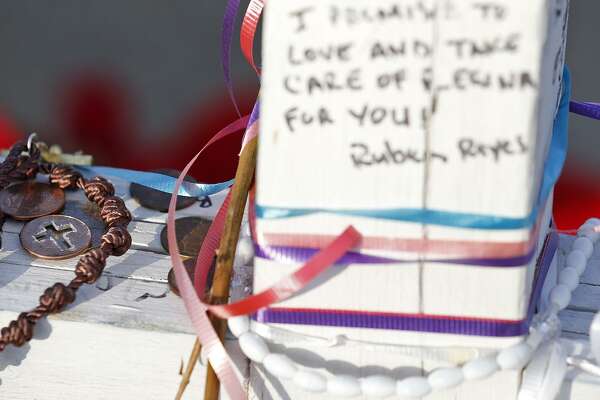 I PROMISE TO
LOVE AND TAKE
CARE OF REGINA
FOR YOU!
Ruben Reyes